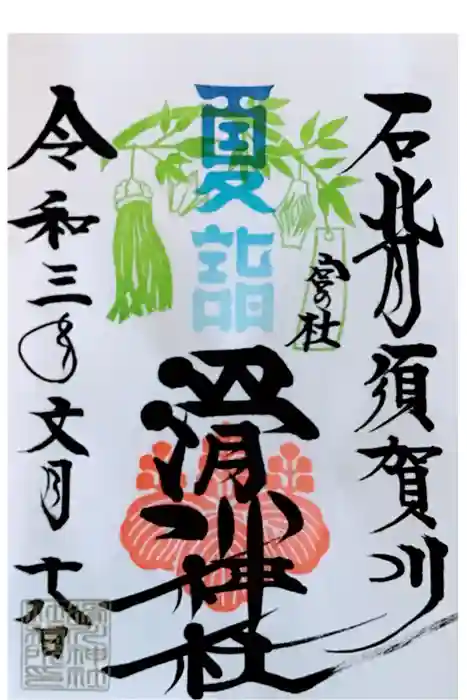 石背須賀川
夏詣
宮の杜
滑川神社
令和三年文月十八日